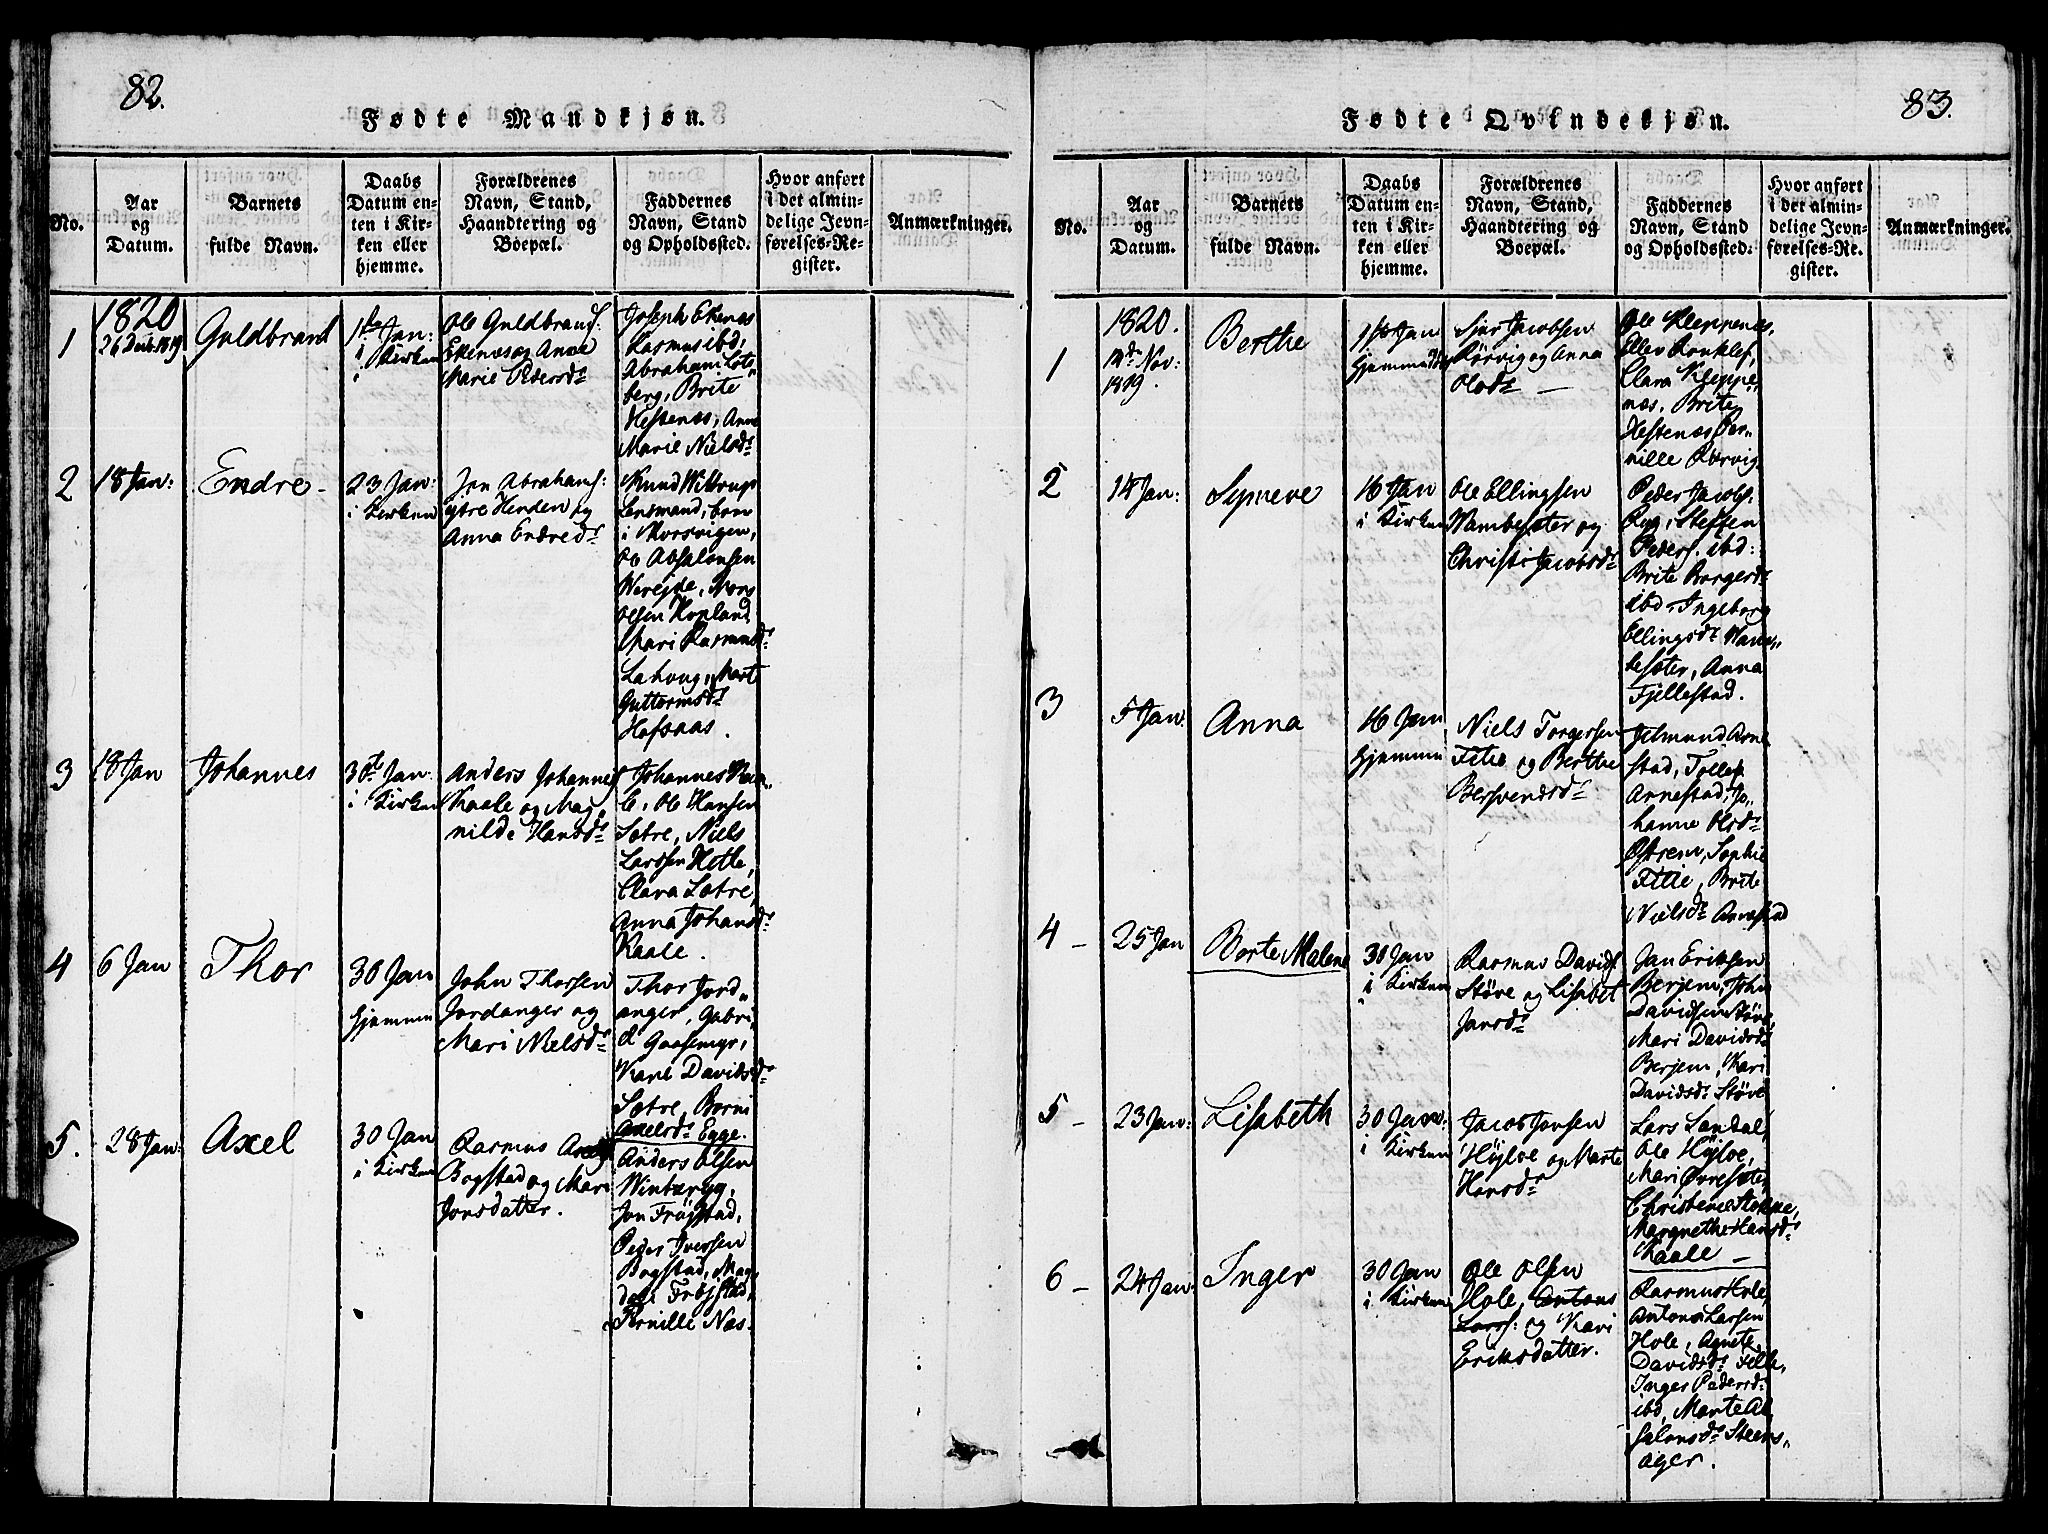 82.
Fødte Mandkjøn.
No.
Aar
og
Datum.
Barnets
fulde Navn.
Daabs
Datum en-
ten i Kir-
ken eller
hjemme.
Forældrenes
Navn, Stand,
Haandtering og
Boepæl.
Faddernes
Navn, Stand
og Opholdssted.
Hvor anført
i det almin-
delige Jevn-
førelses-Re-
gister.
Anmærkninger.
1
1820
26 Decb. 1819
Guldbrand
1ste Jan:
i Kirken
Ole Guldbrands:
Ekenæs og Anne
Marie Pedersdr
Joseph Ekenæs
Rasmus ibd,
Abraham Lots„
berg, Brite
Hestenæs, Anne
Marie Nielsdr
2
18 Jan:
Endre
23 Jan:
i Kirken
Jon Abrahams:
ytre Henden og
Anna Endredr
Knud
Lensmand,
i
Ole Absalonsen
Wereide,
Olsen Hopland
Mari Rasmusdr
Lahoug, Mart
Guttormsdr
Hofsaas.
3
18 Jan
Johannes
30t Jan:
i Kirken
Anders Johannes
Kaale og Mag„
nilde Hansdr
Johannes
Ole Hansen
Sætre, Niels
Larssen Hetle,
Clara Sætre,
Anna Johansdr
Kaale.
4
6 Jan
Thor
30 Jan
hjemme
John Thorsen
Jordanger og
Mari Nielsdr
Thor Jord„
anger, Gabri„
el Gaasemyr,
Kari Davidsdr
Sætre, Borni
Axelsdr Egge.
5.
28 Jan:
Axel
30 Jan
i Kirken
Rasmus Axels
Bogstad og Mari
Jonsdatter.
Anders Olsen
Winteryg,
Jon Frøjstad,
Peder Iversen
Bogstad, Mag„
dele Frøjstad,
Pernille Næs.
83.
Fødte Qvindekjøn.
No.
Aar
og
Datum.
Barnets
fulde Navn.
Daabs
Datum en-
ten i Kir-
ken eller
hjemme.
Forældrenes
Navn, Stand,
Haandtering og
Boepæl.
Faddernes
Navn, Stand
og Opholdssted.
Hvor anført
i det almin-
delige Jevn-
førelses-Re-
gister.
Anmærkninger.
1
1820.
Nov:
1819.
Berthe
1ste Jan
hjemmedøbt
Sjur Jacobsen
Rørvig og Anna
Olsdr
Ole Kleppenæs,
Ellev
Clara Kleppe„
næs, Brite
Hestenæs, Per„
nille Rørvig
2
14 Jan:
Synneve
16 Jan
i Kirken
Ole Ellingsen
Wambesæter og
Christi Jacobsdr
Peder Jacobs:
Ryg, Steffen
Peders. ibd:
Brite Borgersdr
ibd, Ingeborg
Ellingsdr Wam„
besæter, Anna
Fjellestad.
3
5 Jan:
Anna
16 Jan
hjemme
Niels Torgersen
Fitie og Berthe
Bersvendsdr
Jetmund Arne
stad, Tollef
Arnestad, Jo„
hanne Olsdr
Østrem, Sophie
Fitie, Brite
Nielsdr Arnestad
4 –
25 Jan
Berte Malene
30 Jan
i Kirken
Rasmus Davids
Støve og Lisabet
Jansdr
Jan Eriksen
Berjem, John
Davidsen Støve,
Mari Davidsdr
Berjem, Kari
Davidsdr Støve
5 –
23 Jan:
Lisabeth
30 Jan:
i Kirken
Jacob Jonsen
Høyloe og Marte
Hansdr
Lars Sandal,
Ole Høyloe,
Mari Øvresæter,
Christence Stokke,
Margrethe Hansdr
Kaale –
6 –
24 Jan:
Inger
30 Jan
i Kirken
Ole Olsen
Hole, Antons
Larss: og Kari
Eriksdatter.
Rasmus Hole,
Anton Larsen
Hole, Agnete
Davidsdr Felle,
Inger Pedersdr
ibd, Marte Ab„
salonsdr Steens„
ager.